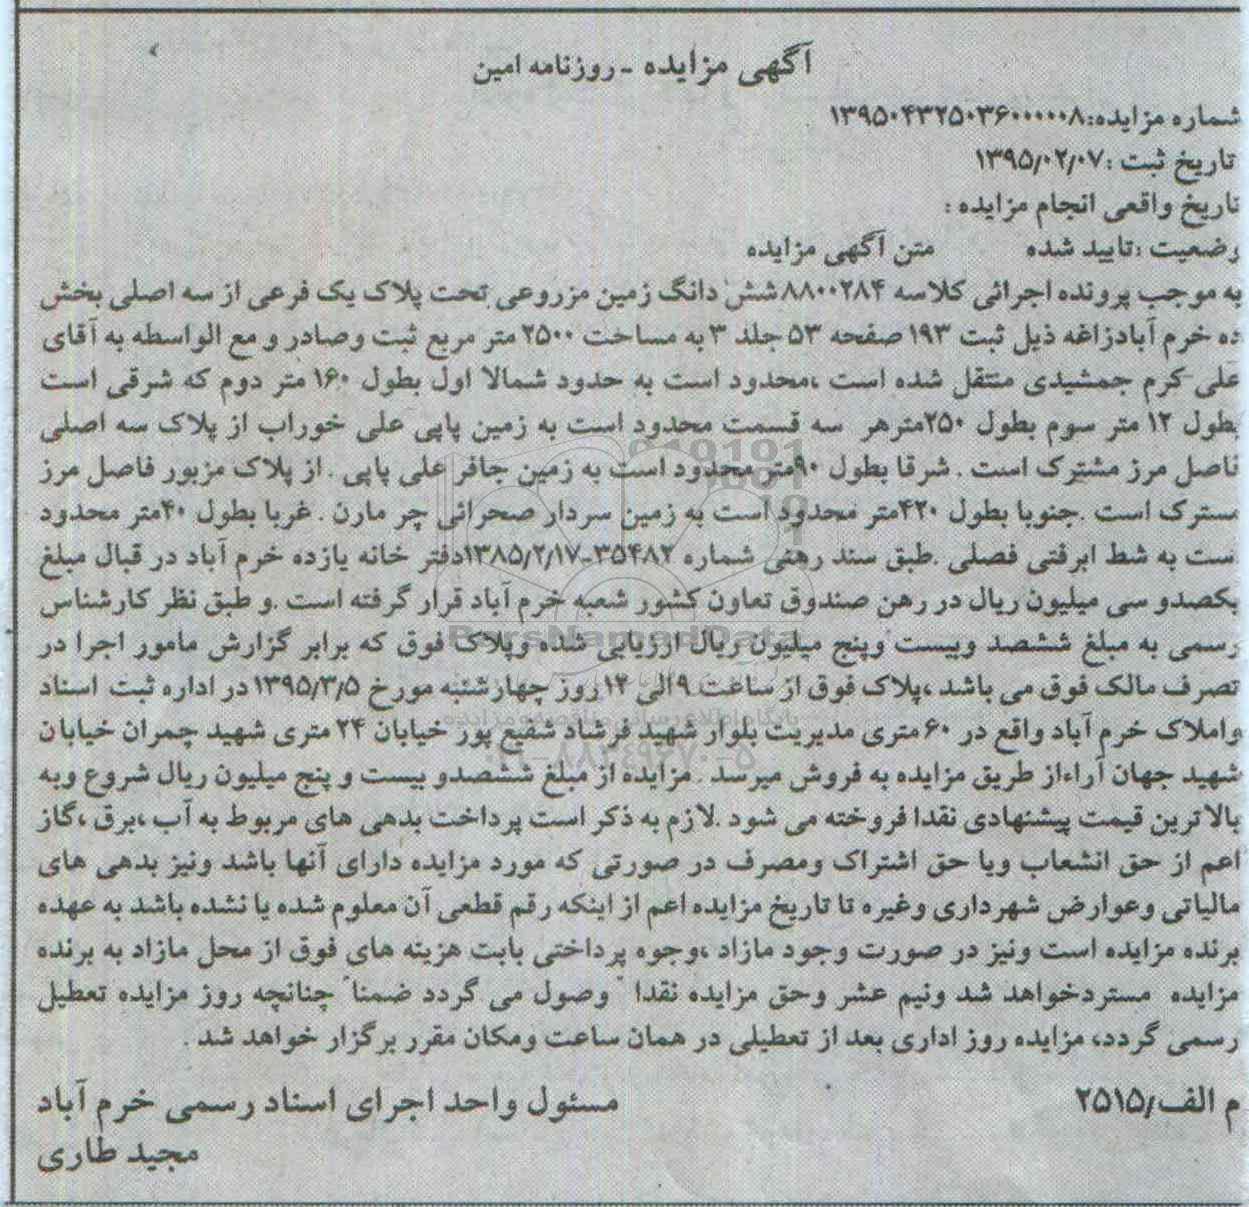 آگهی مزایده - روزنامه امین
شماره مزایده:۱۳۹۵۰۴۳۲۵۰۳۶۰۰۰۰۰۸
تاریخ ثبت :۱۳۹۵/۰۲/۰۷
تاریخ واقعی انجام مزایده :
وضعیت :تایید شده متن آگهی مزایده
به موجب پرونده اجرائی کلاسه ۸۸۰۰۲۸۴شش دانگ زمین مزروعی تحت پلاک یک فرعی از سه اصلی بخش
ده خرم آبادزاغه ذیل ثبت ۱۹۳ صفحه ۵۳ جلد ۳ به مساحت ۲۵۰۰ متر مربع ثبت وصادر و مع الواسطه به آقای
علی کرم جمشیدی منتقل شده است ،محدود است به حدود شمالا اول بطول ۱۶۰ متر دوم که شرقی است
بطول ۱۲ متر سوم بطول ۲۵۰مترهر سه قسمت محدود است به زمین پاپی علی خوراب از پلاک سه اصلی
فاصل مرز مشترک است . شرقا بطول ۹۰متر محدود است به زمین جافر علی پاپی . از پلاک مزبور فاصل مرز
مسترک است .جنوبا بطول ۴۲۰متر محدود است به زمین سردار صحرائی چر مارن . غربا بطول ۴۰متر محدود
است به شط ابرفتی فصلی .طبق سند رهنی شماره ۳۵۴۸۲-۱۳۸۵/۲/۱۷دفتر خانه یازده خرم آباد در قبال مبلغ
یکصدو سی میلیون ریال در رهن صندوق تعاون کشور شعبه خرم آباد قرار گرفته است .و طبق نظر کارشناس
رسمی به مبلغ ششصد وبیست وپنج میلیون ریال ارزیابی شده وپلاک فوق که برابر گزارش مامور اجرا در
تصرف مالک فوق می باشد ،پلاک فوق از ساعت ۹الی ۱۲ روز چهارشنبه مورخ ۱۳۹۵/۳/۵ در اداره ثبت اسناد
واملاک خرم آباد واقع در ۶۰ متری مدیریت بلوار شهید فرشاد شفیع پور خیابان ۲۴ متری شهید چمران خیابان
شهید جهان آراءاز طریق مزایده به فروش میرسد . مزایده از مبلغ ششصدو بیست و پنج میلیون ریال شروع وبه
بالاترین قیمت پیشنهادی نقدا فروخته می شود .لازم به ذکر است پرداخت بدهی های مربوط به آب ،برق ،گاز
اعم از حق انشعاب ویا حق اشتراک ومصرف در صورتی که مورد مزایده دارای آنها باشد ونیز بدهی های
مالیاتی وعوارض شهرداری وغیره تا تاریخ مزایده اعم از اینکه رقم قطعی آن معلوم شده یا نشده باشد به عهده
برنده مزایده است ونیز در صورت وجود مازاد ،وجوه پرداختی بابت هزینه های فوق از محل مازاد به برنده
مزایده مستردخواهد شد ونیم عشر وحق مزایده نقدا ً وصول می گردد ضمنا ً چنانچه روز مزایده تعطیل
رسمی گردد، مزایده روز اداری بعد از تعطیلی در همان ساعت ومکان مقرر برگزار خواهد شد .
م الف/۲۵۱۵ مسئول واحد اجرای اسناد رسمی خرم آباد
مجید طاری
ParsNamadData
پایگاه اطلاع رسانی مناقصه و مزایده
۰۲۱-۸۸۳۴۹۶۷۰-۵